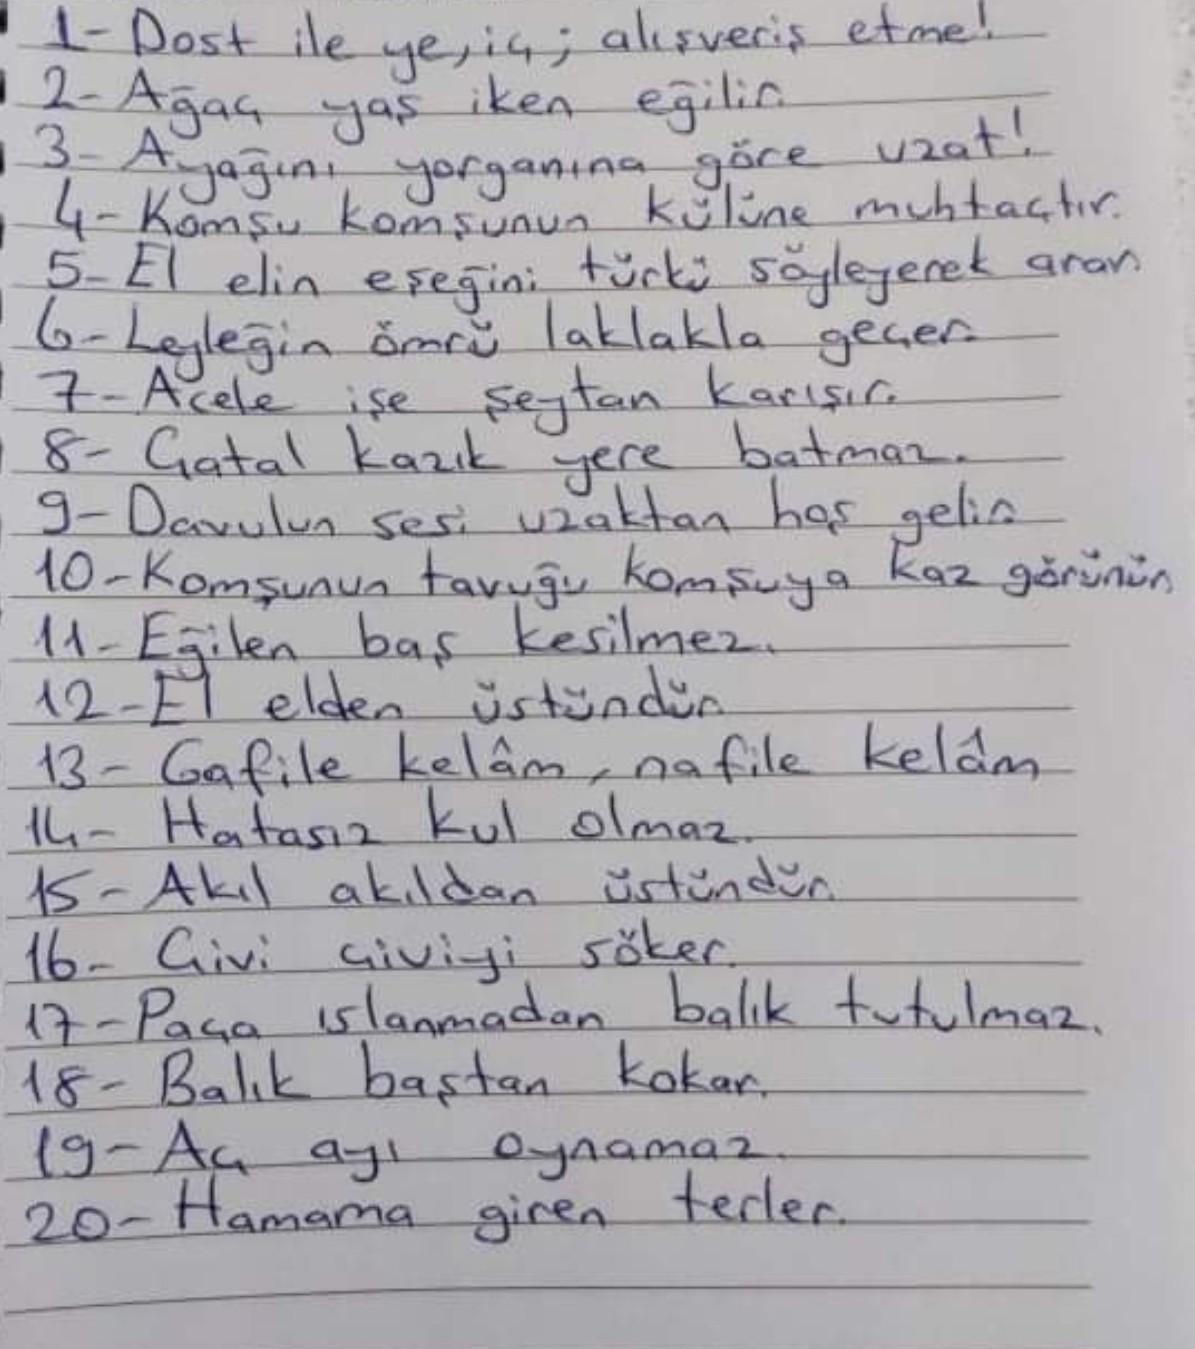 1- Dost ile ye, iç; alışveriş etme!
2- Ağaç yaş iken eğilir.
3- Ayağını yorganına göre uzat!
4- Komşu komşunun külüne muhtaçtır.
5- El elin eşeğini türkü söyleyerek arar.
6- Leyleğin ömrü laklakla geçer.
7- Acele işe şeytan karışır.
8- Çatal kazık yere batmaz.
9- Davulun sesi uzaktan hoş gelir.
10- Komşunun tavuğu komşuya kaz görünür.
11- Eğilen baş kesilmez.
12- El elden üstündür.
13- Gafile kelâm, nafile kelâm
14- Hatasız kul olmaz.
15- Akıl akıldan üstündür.
16- Çivi çiviyi söker.
17- Paça ıslanmadan balık tutulmaz.
18- Balık baştan kokar.
19- Aç ayı oynamaz.
20- Hamama giren terler.